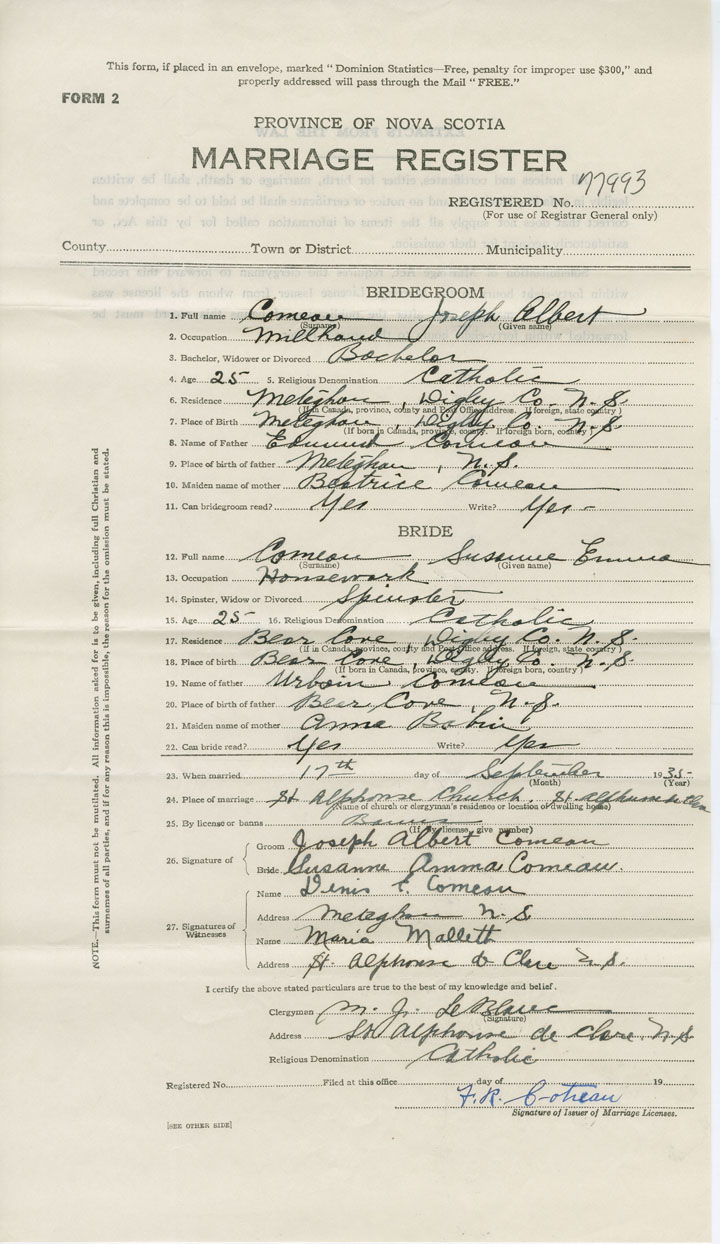 This form, if placed in an envelope, marked "Dominion Statistics—Free, penalty for improper use $300," and
properly addressed will pass through the Mail "FREE."
FORM 2
PROVINCE OF NOVA SCOTIA
MARRIAGE REGISTER
REGISTERED No. 77993
(For use of Registrar General only)
County Town or District Municipality
BRIDEGROOM
1. Full name Comeau Joseph Albert
(Surname) (Given name)
2. Occupation Millhand
3. Bachelor, Widower or Divorced Bachelor
4. Age 25 5. Religious Denomination Catholic
6. Residence Meteghan, Digby Co. N.S.
(If in Canada, province, county and Post Office address. If foreign, state country)
7. Place of Birth Meteghan, Digby Co. N.S.
(If born in Canada, province, county. If foreign born, country)
8. Name of Father Edmund Comeau
9. Place of birth of father Meteghan, N.S.
10. Maiden name of mother Beatrice Comeau
11. Can bridegroom read? Yes Write? Yes -
BRIDE
12. Full name Comeau Susanne Emma
(Surname) (Given name)
13. Occupation Housework
14. Spinster, Widow or Divorced Spinster
15. Age 25 16. Religious Denomination Catholic
17. Residence Bear Cove, Digby Co. N.S.
(If in Canada, province, county and Post Office address. If foreign, state country)
18. Place of birth Bear Cove, Digby Co. N.S.
(If born in Canada, province, county. If foreign born, country)
19. Name of father Urbain Comeau
20. Place of birth of father Bear Cove, N.S.
21. Maiden name of mother Anna Babin
22. Can bride read? Yes Write? Yes
23. When married 17th day of September 1935
(Month) (Year)
24. Place of marriage St Alphonse Church, St Alphonse de Clare
(Name of church or clergyman's residence or location of dwelling house)
25. By license or banns Banns
(If by license, give number)
26. Signature of Groom Joseph Albert Comeau
Bride Susanne Amma Comeau.
27. Signatures of Witnesses
Name Denis E. Comeau
Address Meteghan N.S.
Name Maria Mallett
Address St. Alphonse de Clare N.S.
I certify the above stated particulars are true to the best of my knowledge and belief.
Clergyman M. J. LeBlanc
(Signature)
Address St Alphonse de Clare, N.S
Religious Denomination Catholic
Registered No. Filed at this office day of 19
F.R.
Signature of Issuer of Marriage Licenses.
[SEE OTHER SIDE]
NOTE.—This form must not be mutilated. All information asked for is to be given, including full Christian and
surnames of all parties, and if for any reason this is impossible, the reason for the omission must be stated.